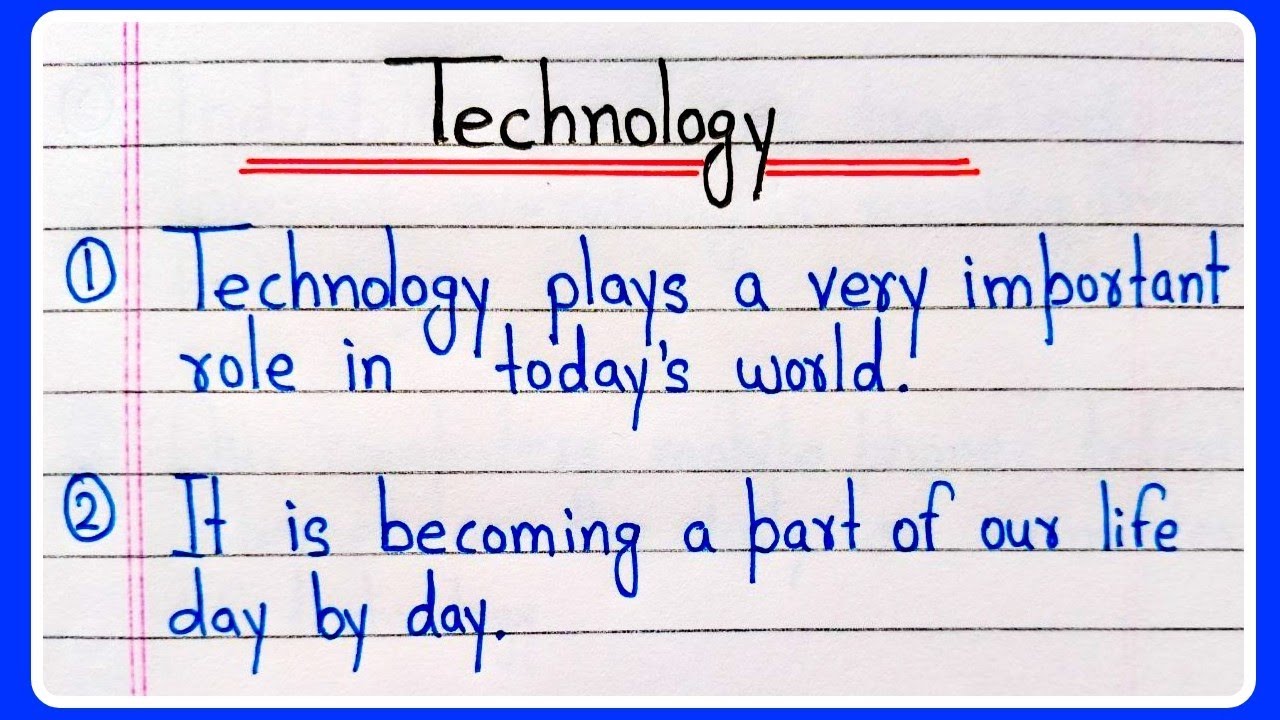 Technology
① Technology plays a very important
role in today's world.
② It is becoming a part of our life
day by day.